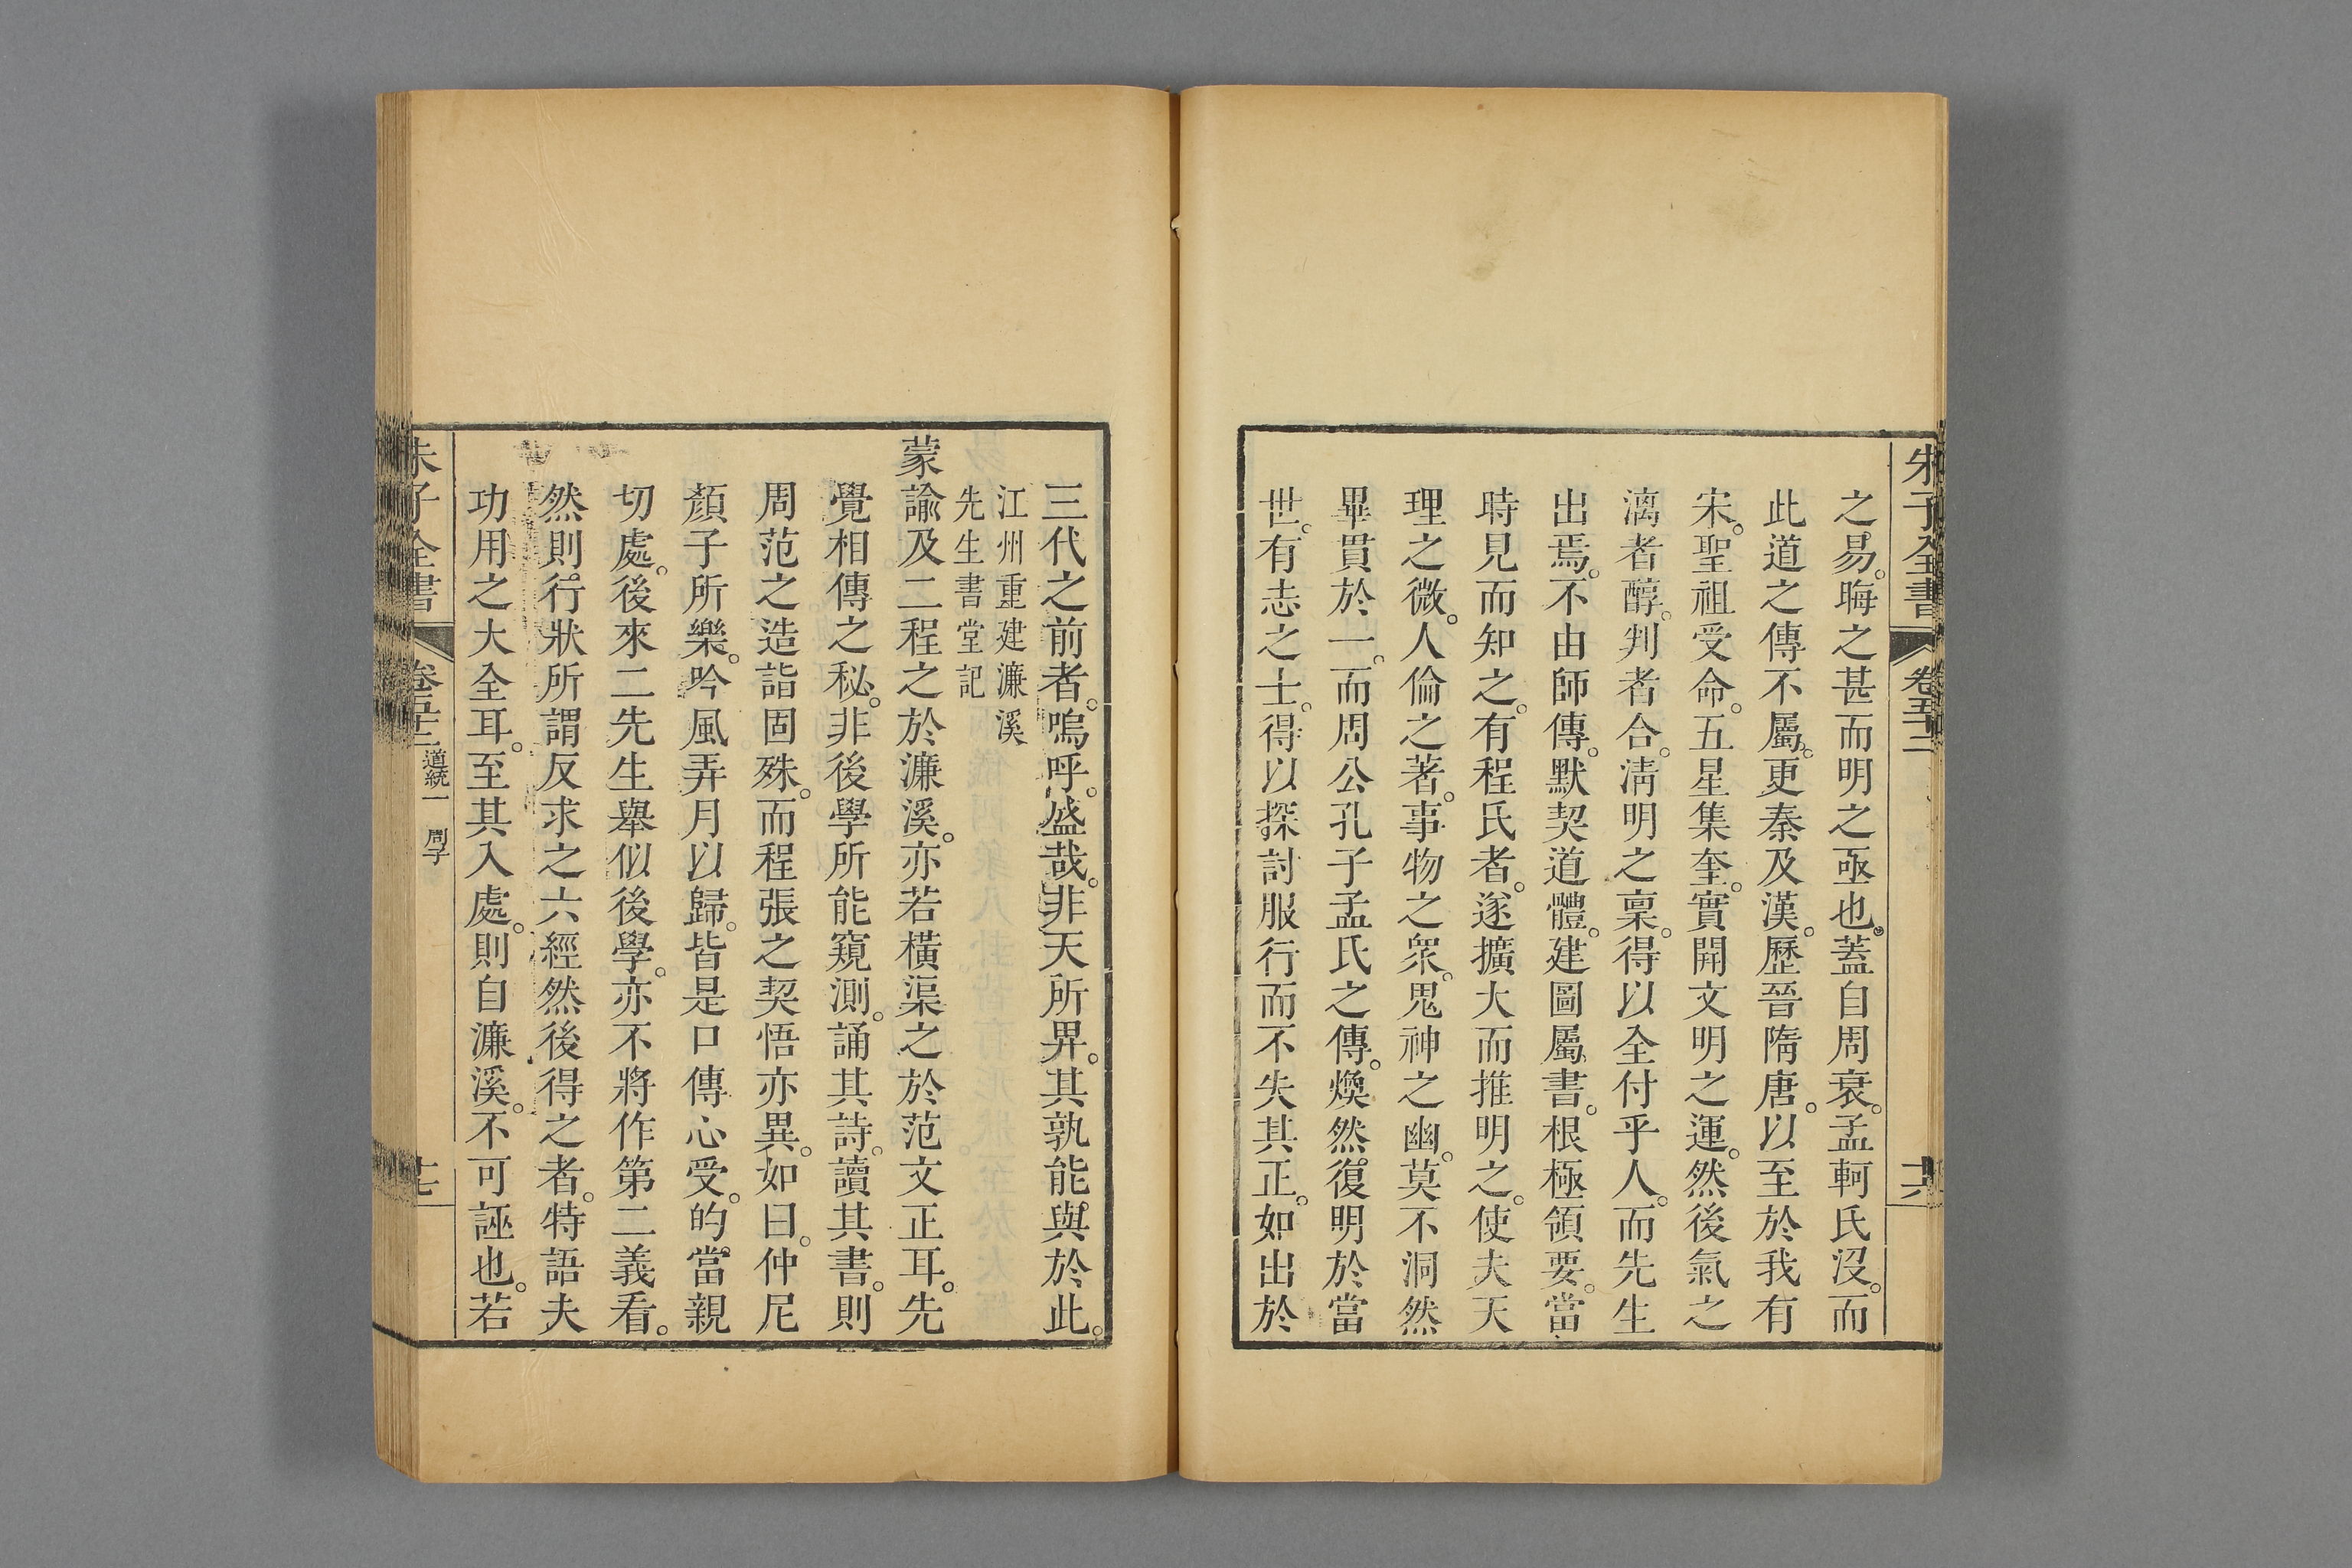 朱子全書 卷五十二 十六
之易。晦之甚而明之亟也。蓋自周衰。孟軻氏沒。而
此道之傳不屬。更秦及漢。歷晉隋唐。以至於我有
宋。聖祖受命。五星集奎。實開文明之運。然後氣之
漓者醇。判者合。淸明之稟。得以全付乎人。而先生
出焉。不由師傳。默契道體。建圖屬書。根極領要。當
時見而知之。有程氏者。遂擴大而推明之。使夫天
理之微。人倫之著。事物之衆。鬼神之幽。莫不洞然
畢貫於一。而周公孔子孟氏之傳。煥然復明於當
世。有志之士。得以探討服行而不失其正。如出於
三代之前者。嗚呼。盛哉。非天所畀。其孰能與於此。
江州重建濂溪
先生書堂記
蒙諭及二程之於濂溪。亦若橫渠之於范文正耳。先
覺相傳之秘。非後學所能窺測。誦其詩。讀其書。則
周范之造詣固殊。而程張之契悟亦異。如曰。仲尼
顏子所樂。吟風弄月以歸。皆是口傳心受。的當親
切處。後來二先生舉似後學。亦不將作第二義看。
然則行狀所謂反求之六經然後得之者。特語夫
功用之大全耳。至其入處。則自濂溪。不可誣也。若
朱子全書 卷五十二 道統一 周子 十七